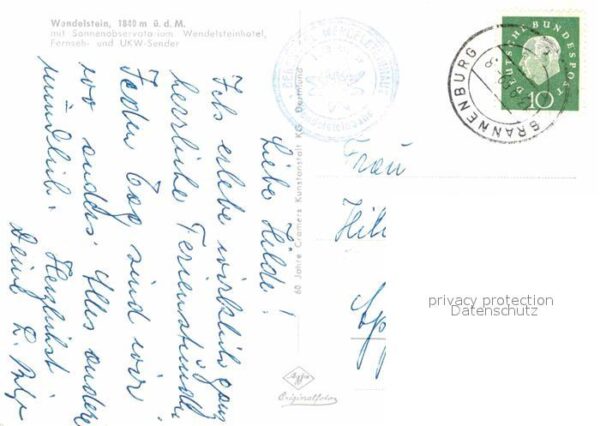 Wendelstein, 1840 m ü. d. M.
mit Sonnenobservatorium Wendelsteinhotel,
Fernseh- und UKW-Sender
Liebe Hilde!
Ich erlebe wirklich ganz
herrliche Ferienstunden
Jeden Tag sind wir
wo anders. Alles andere
mündlich. Herzlichst
Deine
60 Jahre Cramers Kunstanstalt KG, Dortmund
Agfa
Originalfoto
Frau
Hil
BRANNENBURG
DEUTSCHE BUNDESPOST
10
privacy protection
Datenschutz